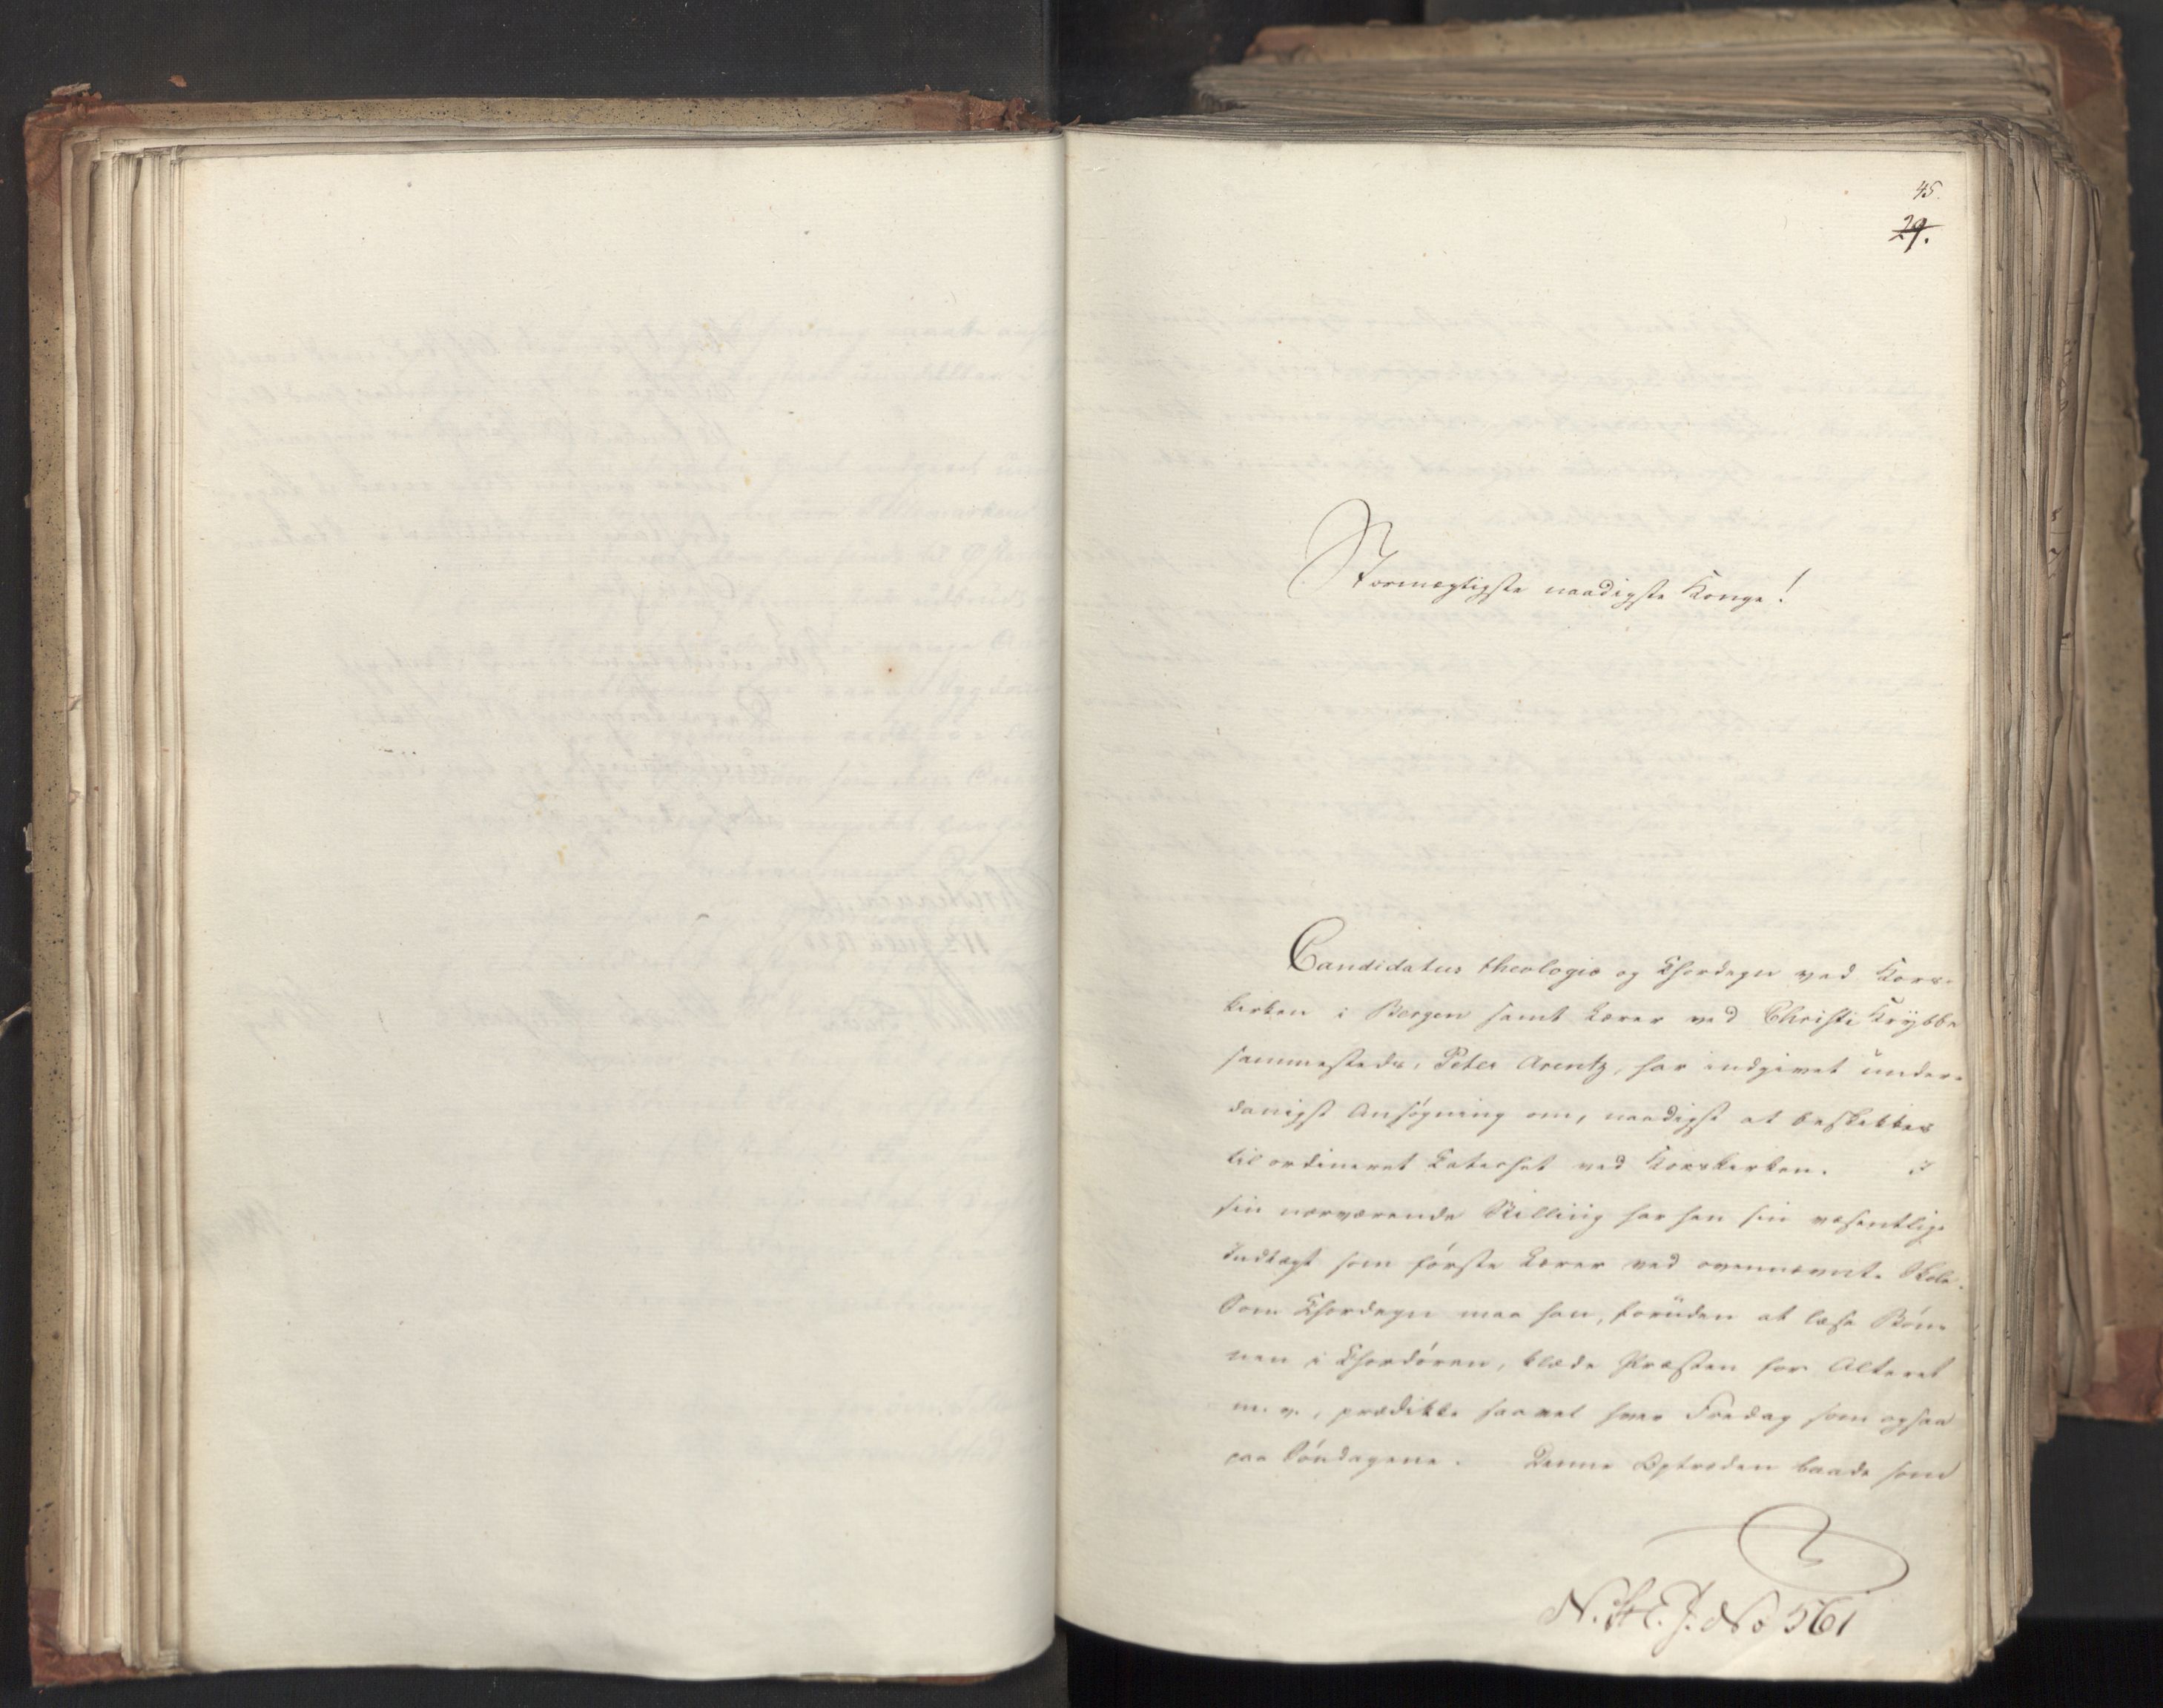 45.
29.
Stormægtigste naadigste Konge!
Candidatus theologiæ og Chordegn ved Kors-
kirken i Bergen samt Lærer ved Christi Krÿbbe
sammesteds, Peter Arentz, har indgivet under-
danigst Ansøgning om, naadigst at beskikkes
til ordineret Catechet ved Korskirken. I
sin nærværende Stilling har han sin væsentlige
Indtægt som første Lærer ved ovennævnte Skole.
Som Chordegn maa han, foruden at læse Bøn-
nen i Chordøren, klæde Præsten for Alteret
m. v., prædike saavel hver Fredag som ogsaa
paa Søndagene. Denne Optræden baade som
N. St. C. J. No 561